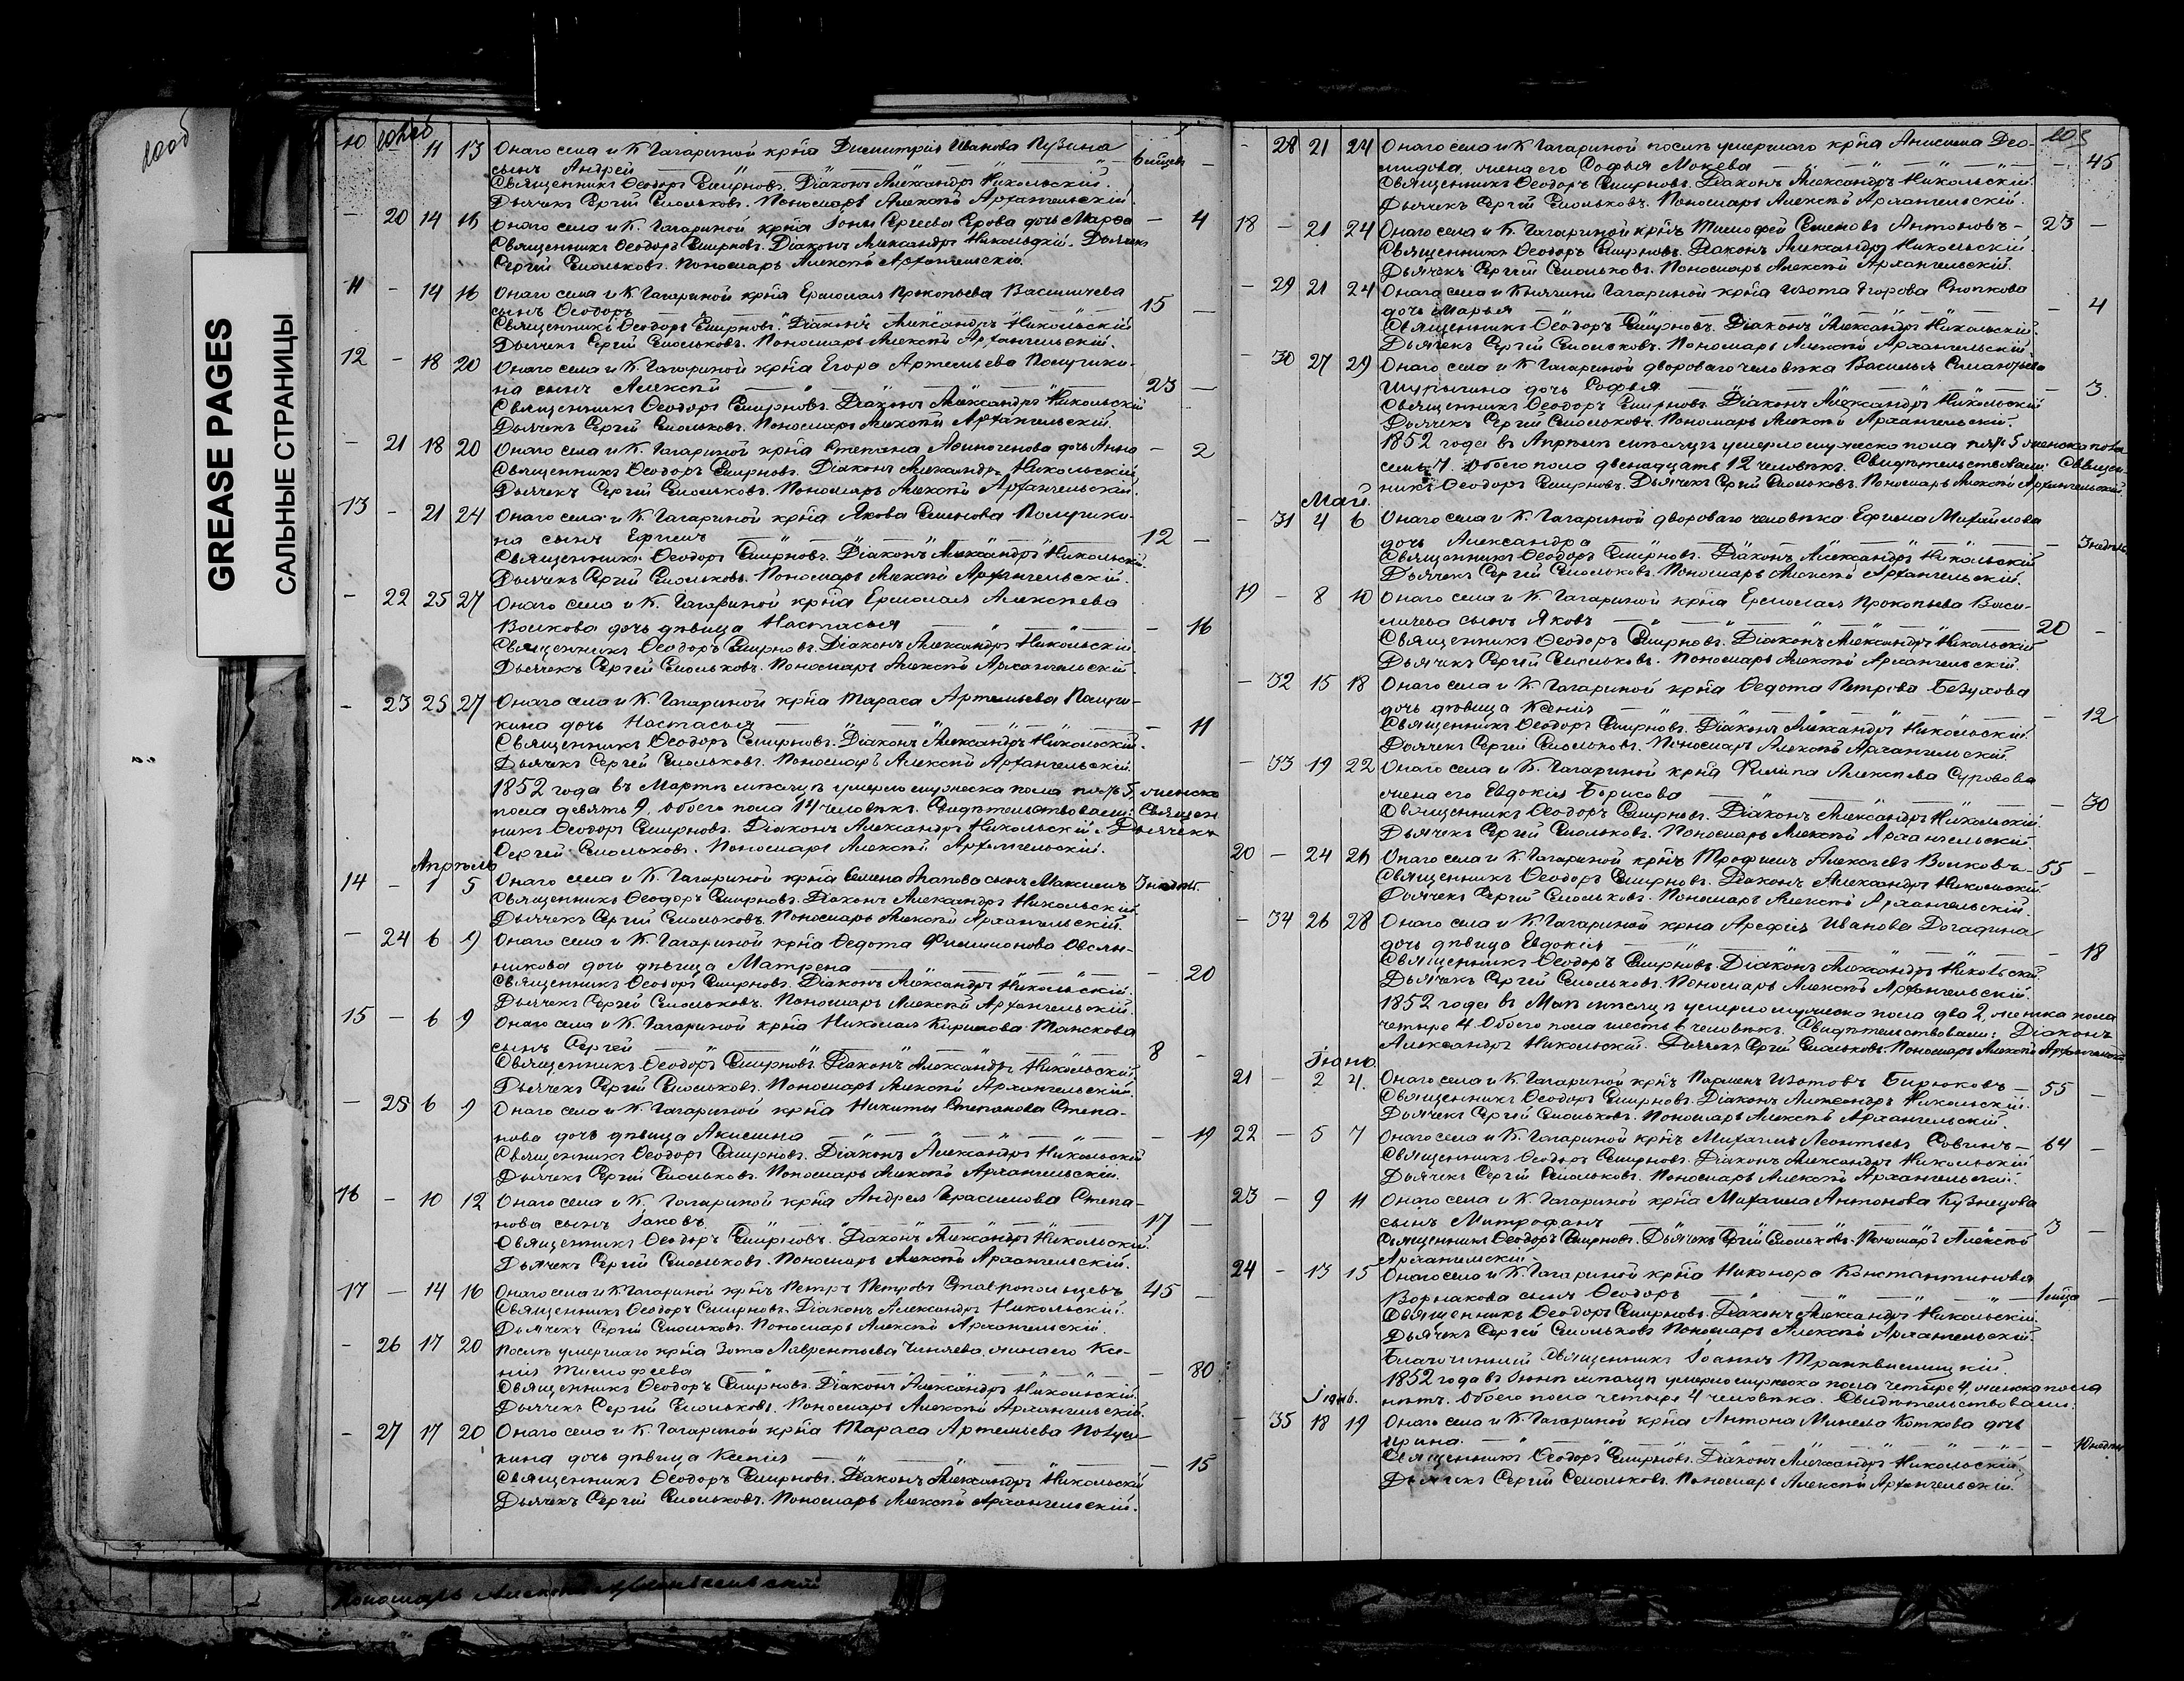 GREASE PAGES
САЛЬНЫЕ СТРАНИЦЫ
10 – 11 13 Онаго села и К. Гагариной крѣа Димитрія Иванова Пузина
сынъ Андрей 6 мцев –
Священникъ Ѳеодоръ Смирновъ. Діаконъ Александръ Никольскій.
Дьячекъ Сергій Смольковъ. Пономарь Алексѣй Архангельскій.
– 20 14 16 Онаго села и К. Гагариной крѣа Іоны Сергеева Ерова дочь Марѳа – 4
Священникъ Ѳеодоръ Смирновъ. Діаконъ Александръ Никольскій. Дьячекъ
Сергій Смольковъ. Пономарь Алексѣй Архангельскій.
11 – 14 16 Онаго села и К. Гагариной крѣа Ермолая Прокопьева Василичева
сынъ Ѳеодоръ 15 –
Священникъ Ѳеодоръ Смирновъ. Діаконъ Александръ Никольскій
Дьячекъ Сергій Смольковъ. Пономарь Алексѣй Архангельскій.
12 – 18 20 Онаго села и К. Гагариной крѣа Егора Артемьева Полушки-
на сынъ Алексѣй 23 –
Священникъ Ѳеодоръ Смирновъ. Діаконъ Александръ Никольскій
Дьячекъ Сергій Смольковъ. Пономарь Алексѣй Архангельскій.
– 21 18 20 Онаго села и К. Гагариной крѣа Степана Аѳиногенова дочь Анна – 2
Священникъ Ѳеодоръ Смирновъ. Діаконъ Александръ Никольскій
Дьячекъ Сергій Смольковъ. Пономарь Алексѣй Архангельскій.
13 – 21 24 Онаго села и К. Гагариной крѣа Якова Семенова Полушки-
на сынъ Ефимъ 12 –
Священникъ Ѳеодоръ Смирновъ. Діаконъ Александръ Никольскій.
Дьячекъ Сергій Смольковъ. Пономарь Алексѣй Архангельскій.
– 22 25 27 Онаго села и К. Гагариной крѣа Ермолая Алексѣева
Волкова дочь дѣвица Настасья – 16
Священникъ Ѳеодоръ Смирновъ. Діаконъ Александръ Никольскій.
Дьячекъ Сергій Смольковъ. Пономарь Алексѣй Архангельскій.
– 23 25 27 Онаго села и К. Гагариной крѣа Тараса Артемьева Полуш-
кина дочь Настасья – 11
Священникъ Ѳеодоръ Смирновъ. Діаконъ Александръ Никольскій.
Дьячекъ Сергій Смольковъ. Пономарь Алексѣй Архангельскій.
1852 года въ Мартѣ мѣсяцѣ умерло мужеска пола пять 5, женска
пола девять 9, обоего пола 14 человѣкъ. Свидѣтельствовали: Священ
никъ Ѳеодоръ Смирновъ. Діаконъ Александръ Никольскій. Дьячекъ
Сергій Смольковъ. Пономарь Алексѣй Архангельскій.
Апрѣль
14 – 1 5 Онаго села и К. Гагариной крѣа Семена сынъ Максимъ 3 недѣл.
Священникъ Ѳеодоръ Смирновъ. Діаконъ Александръ Никольскій
Дьячекъ Сергій Смольковъ. Пономарь Алексѣй Архангельскій.
– 24 6 9 Онаго села и К. Гагариной крѣа Ѳедота Филимонова Овсян-
никова дочь дѣвица Матрена – 20
Священникъ Ѳеодоръ Смирновъ. Діаконъ Александръ Никольскій.
Дьячекъ Сергій Смольковъ. Пономарь Алексѣй Архангельскій.
15 – 6 9 Онаго села и К. Гагариной крѣа Николая Кирилова Танскова
сынъ Сергей 8 –
Священникъ Ѳеодоръ Смирновъ. Діаконъ Александръ Никольскій.
Дьячекъ Сергій Смольковъ. Пономарь Алексѣй Архангельскій.
– 25 6 9 Онаго села и К. Гагариной крѣа Никиты Степанова Степа-
нова дочь дѣвица Акилина – 19
Священникъ Ѳеодоръ Смирновъ. Діаконъ Александръ Никольскій
Дьячекъ Сергій Смольковъ. Пономарь Алексѣй Архангельскій.
16 – 10 12 Онаго села и К. Гагариной крѣа Андрея Герасимова Степа-
нова сынъ Іаковъ 17 –
Священникъ Ѳеодоръ Смирновъ. Діаконъ Александръ Никольскій.
Дьячекъ Сергій Смольковъ. Пономарь Алексѣй Архангельскій.
17 – 14 16 Онаго села и К. Гагариной крѣъ Петръ Петровъ 45 –
Священникъ Ѳеодоръ Смирновъ. Діаконъ Александръ Никольскій.
Дьячекъ Сергій Смольковъ. Пономарь Алексѣй Архангельскій.
– 26 17 20 Послѣ умершаго крѣа Зота Лаврентьева жена его Ксе-
нія Тимофеева – 80
Священникъ Ѳеодоръ Смирновъ. Діаконъ Александръ Никольскій.
Дьячекъ Сергій Смольковъ. Пономарь Алексѣй Архангельскій.
– 27 17 20 Онаго села и К. Гагариной крѣа Тараса Артемьева Полуш-
кина дочь дѣвица Ксенія – 15
Священникъ Ѳеодоръ Смирновъ. Діаконъ Александръ Никольскій
Дьячекъ Сергій Смольковъ. Пономарь Алексѣй Архангельскій.
– 28 21 24 Онаго села и К. Гагариной послѣ умершаго крѣа Анисима Део-
мидова, жена его Софья Мокева – 45
Священникъ Ѳеодоръ Смирновъ. Діаконъ Александръ Никольскій.
Дьячекъ Сергій Смольковъ. Пономарь Алексѣй Архангельскій.
18 – 21 24 Онаго села и К. Гагариной крѣъ Тимофей Семеновъ Антоновъ – 23 –
Священникъ Ѳеодоръ Смирновъ. Діаконъ Александръ Никольскій.
Дьячекъ Сергій Смольковъ. Пономарь Алексѣй Архангельскій.
– 29 21 24 Онаго села и Княгини Гагариной крѣа Изота Егорова Снопкова
дочь Марья – 4
Священникъ Ѳеодоръ Смирновъ. Діаконъ Александръ Никольскій.
Дьячекъ Сергій Смольковъ. Пономарь Алексѣй Архангельскій.
– 30 27 29 Онаго села и К. Гагариной двороваго человѣка Василья
Шурыгина дочь Софья – 3.
Священникъ Ѳеодоръ Смирновъ. Діаконъ Александръ Никольскій
Дьячекъ Сергій Смольковъ. Пономарь Алексѣй Архангельскій.
1852 года въ Апрѣлѣ мѣсяцѣ умерло мужеска пола пять 5 женска пола
семь 7. Обоего пола двенадцать 12 человѣкъ. Свидѣтельствовали: Священ
никъ Ѳеодоръ Смирновъ. Дьячекъ Сергій Смольковъ. Пономарь Алексѣй Архангельскій.
Май.
– 31 4 6 Онаго села и К. Гагариной двороваго человѣка Ефима Михайлова
дочь Александра – 3 недѣли
Священникъ Ѳеодоръ Смирновъ. Діаконъ Александръ Никольскій
Дьячекъ Сергій Смольковъ. Пономарь Алексѣй Архангельскій.
19 – 8 10 Онаго села и К. Гагариной крѣа Ермолая Прокопьева Васи-
личева сынъ Яковъ 20 –
Священникъ Ѳеодоръ Смирновъ. Діаконъ Александръ Никольскій
Дьячекъ Сергій Смольковъ. Пономарь Алексѣй Архангельскій.
– 32 15 18 Онаго села и К. Гагариной крѣа Ѳедота Петрова Безухова
дочь дѣвица Ксенія – 12
Священникъ Ѳеодоръ Смирновъ. Діаконъ Александръ Никольскій.
Дьячекъ Сергій Смольковъ. Пономарь Алексѣй Архангельскій.
– 33 19 22 Онаго села и К. Гагариной крѣа Филипа Алексѣева Суровова
жена его Евдокія Борисова – 30
Священникъ Ѳеодоръ Смирновъ. Діаконъ Александръ Никольскій.
Дьячекъ Сергій Смольковъ. Пономарь Алексѣй Архангельскій.
20 – 24 26 Онаго села и К. Гагариной крѣъ Трофимъ Алексѣевъ Волковъ – 55 –
Священникъ Ѳеодоръ Смирновъ. Діаконъ Александръ Никольскій.
Дьячекъ Сергій Смольковъ. Пономарь Алексѣй Архангельскій.
– 34 26 28 Онаго села и К. Гагариной крѣа Арефія Иванова Догадина
дочь дѣвица Евдокія – 18
Священникъ Ѳеодоръ Смирновъ. Діаконъ Александръ Никольскій.
Дьячекъ Сергій Смольковъ. Пономарь Алексѣй Архангельскій.
1852 года въ Маѣ мѣсяцѣ умерло мужеска пола два 2, женска пола
четыре 4. Обоего пола шесть 6 человѣкъ. Свидѣтельствовали: Діаконъ
Александръ Никольскій. Дьячекъ Сергій Смольковъ. Пономарь Алексѣй Архангельскій
Іюнь.
21 – 2 4. Онаго села и К. Гагариной крѣъ Парменъ Изотовъ Бирюковъ – 55 –
Священникъ Ѳеодоръ Смирновъ. Діаконъ Александръ Никольскій.
Дьячекъ Сергій Смольковъ. Пономарь Алексѣй Архангельскій.
22 – 5 7 Онаго села и К. Гагариной крѣъ Михаилъ Леонтьевъ Совинъ – 64 –
Священникъ Ѳеодоръ Смирновъ. Діаконъ Александръ Никольскій
Дьячекъ Сергій Смольковъ. Пономарь Алексѣй Архангельскій.
23 – 9 11 Онаго села и К. Гагариной крѣа Михаила Антонова Кузнецова
сынъ Митрофанъ 3 –
Священникъ Ѳеодоръ Смирновъ. Дьячекъ Сергій Смольковъ. Пономарь Алексѣй
Архангельскій
24 – 13 15 Онаго села и К. Гагариной крѣа Никонора Константинова
Ворнакова сынъ Ѳеодоръ 1 мѣца –
Священникъ Ѳеодоръ Смирновъ. Діаконъ Александръ Никольскій.
Дьячекъ Сергій Смольковъ. Пономарь Алексѣй Архангельскій.
Благочинный Священникъ Іоаннъ Транквилицкій
1852 года въ Іюнѣ мѣсяцѣ умерло мужеска пола четыре 4, женска пола
нѣтъ. Обоего пола четыре 4 человѣка. Свидѣтельствовали:
– 35 18 19 Онаго села и К. Гагариной крѣа Антона Минеева Коткова дочь
Ирина. – 10 недѣль
Священникъ Ѳеодоръ Смирновъ. Діаконъ Александръ Никольскій
Дьячекъ Сергій Смольковъ. Пономарь Алексѣй Архангельскій.
Пономарь Алексѣй Архангельскій